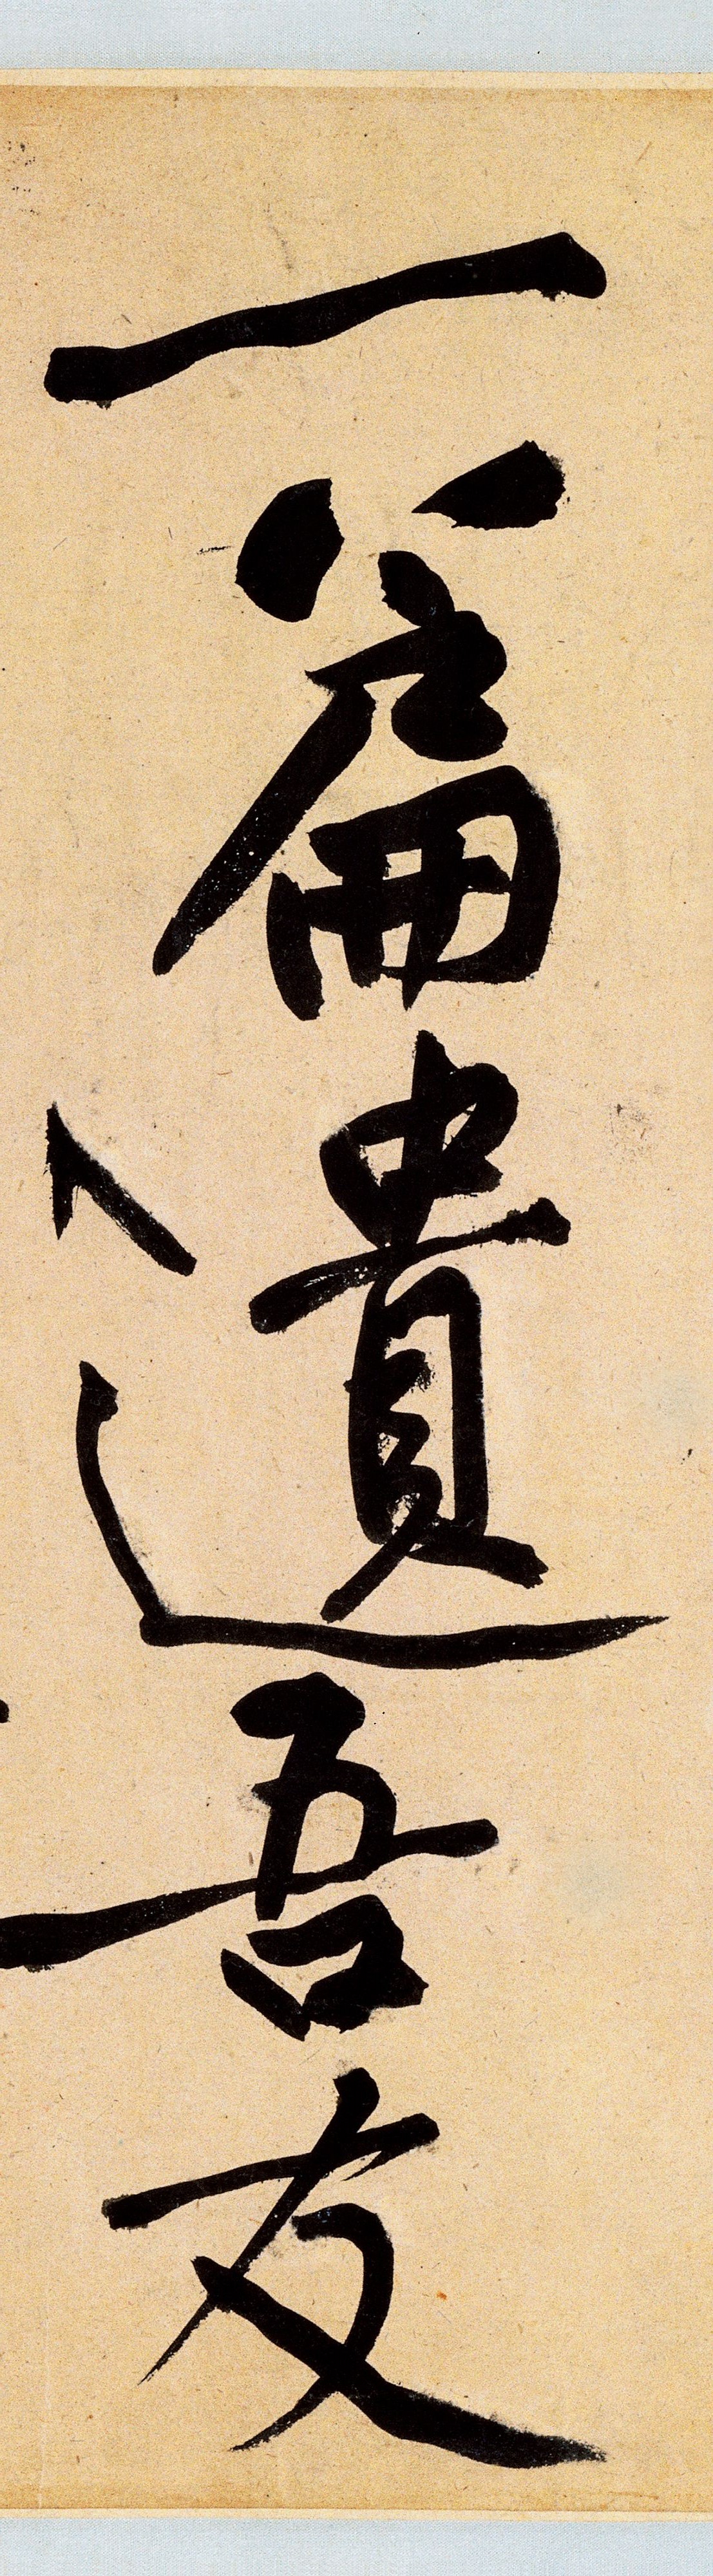 一篇遺吾友